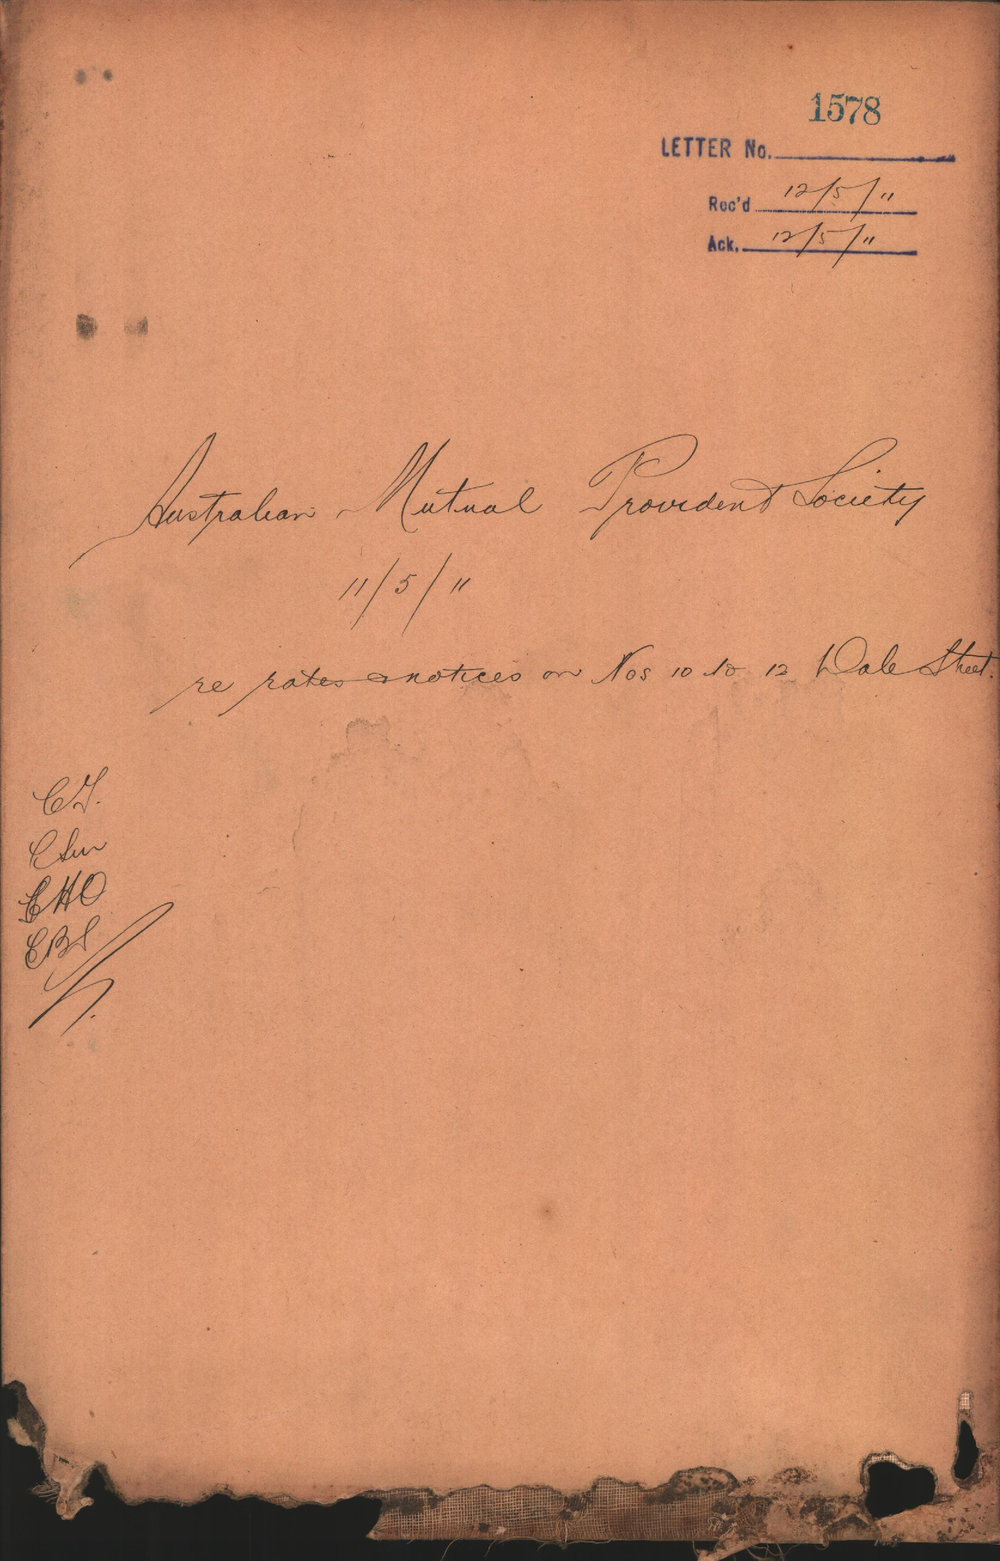 1578
LETTER No.
Rec'd 12/5/11
Ack. 12/5/11
Australian Mutual Provident Society
11/5/11
re rates & notices on Nos 10 to 12 Dale Street.
CHO